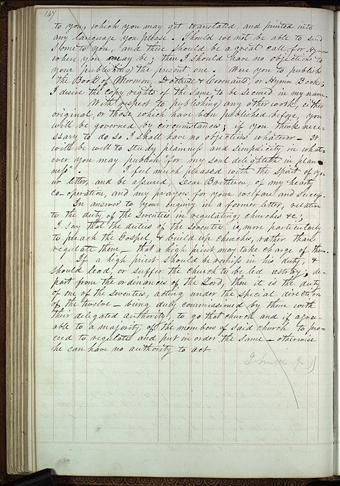 147
to you, which you may get translated, and printed into
any language you please. Should we not be able to send
some to you, and there should be a great call for them
where you may be; then I should have no objection to
your publishing the present one. Were you to publish
the Book of Mormon, Doctrine & Covenants, or Hymn Book,
I desire the copy rights of the same to be secured in my name.
With respect to publishing any other work, either
original, or those which have been published before, you
will be governed by circumstances; if you think neces-
sary to do so I shall have no objection whatever. It
will be well to study plainness and simplicity in what-
ever you may publish "for my soul delighteth in plain-
ness". I feel much pleased with the spirit of your
letter, and be assured, Dear Brethren, of my hearty
co-operation, and my prayers for your welfare and success.
In answer to your inquiry in a former letter, relative
to the duty of the Seventies in regulating churches &c;
I say that the duties of the Seventies is, more particularly
to preach the Gospel, & build up churches, rather than
regulate them — that a high priest may take charge of them.
If a high priest should be remiss in his duty, &
should lead, or suffer the church to be led astray, de-
part from the ordinances of the Lord, then it is the duty
of one of the seventies, acting under the special direction
of the twelve — being duly commissioned by them with
their delegated authority, to go that church and if agree-
able to a majority of the members of said church to pro-
ceed to regulate and put in order the same — otherwise
he can have no authority to act.